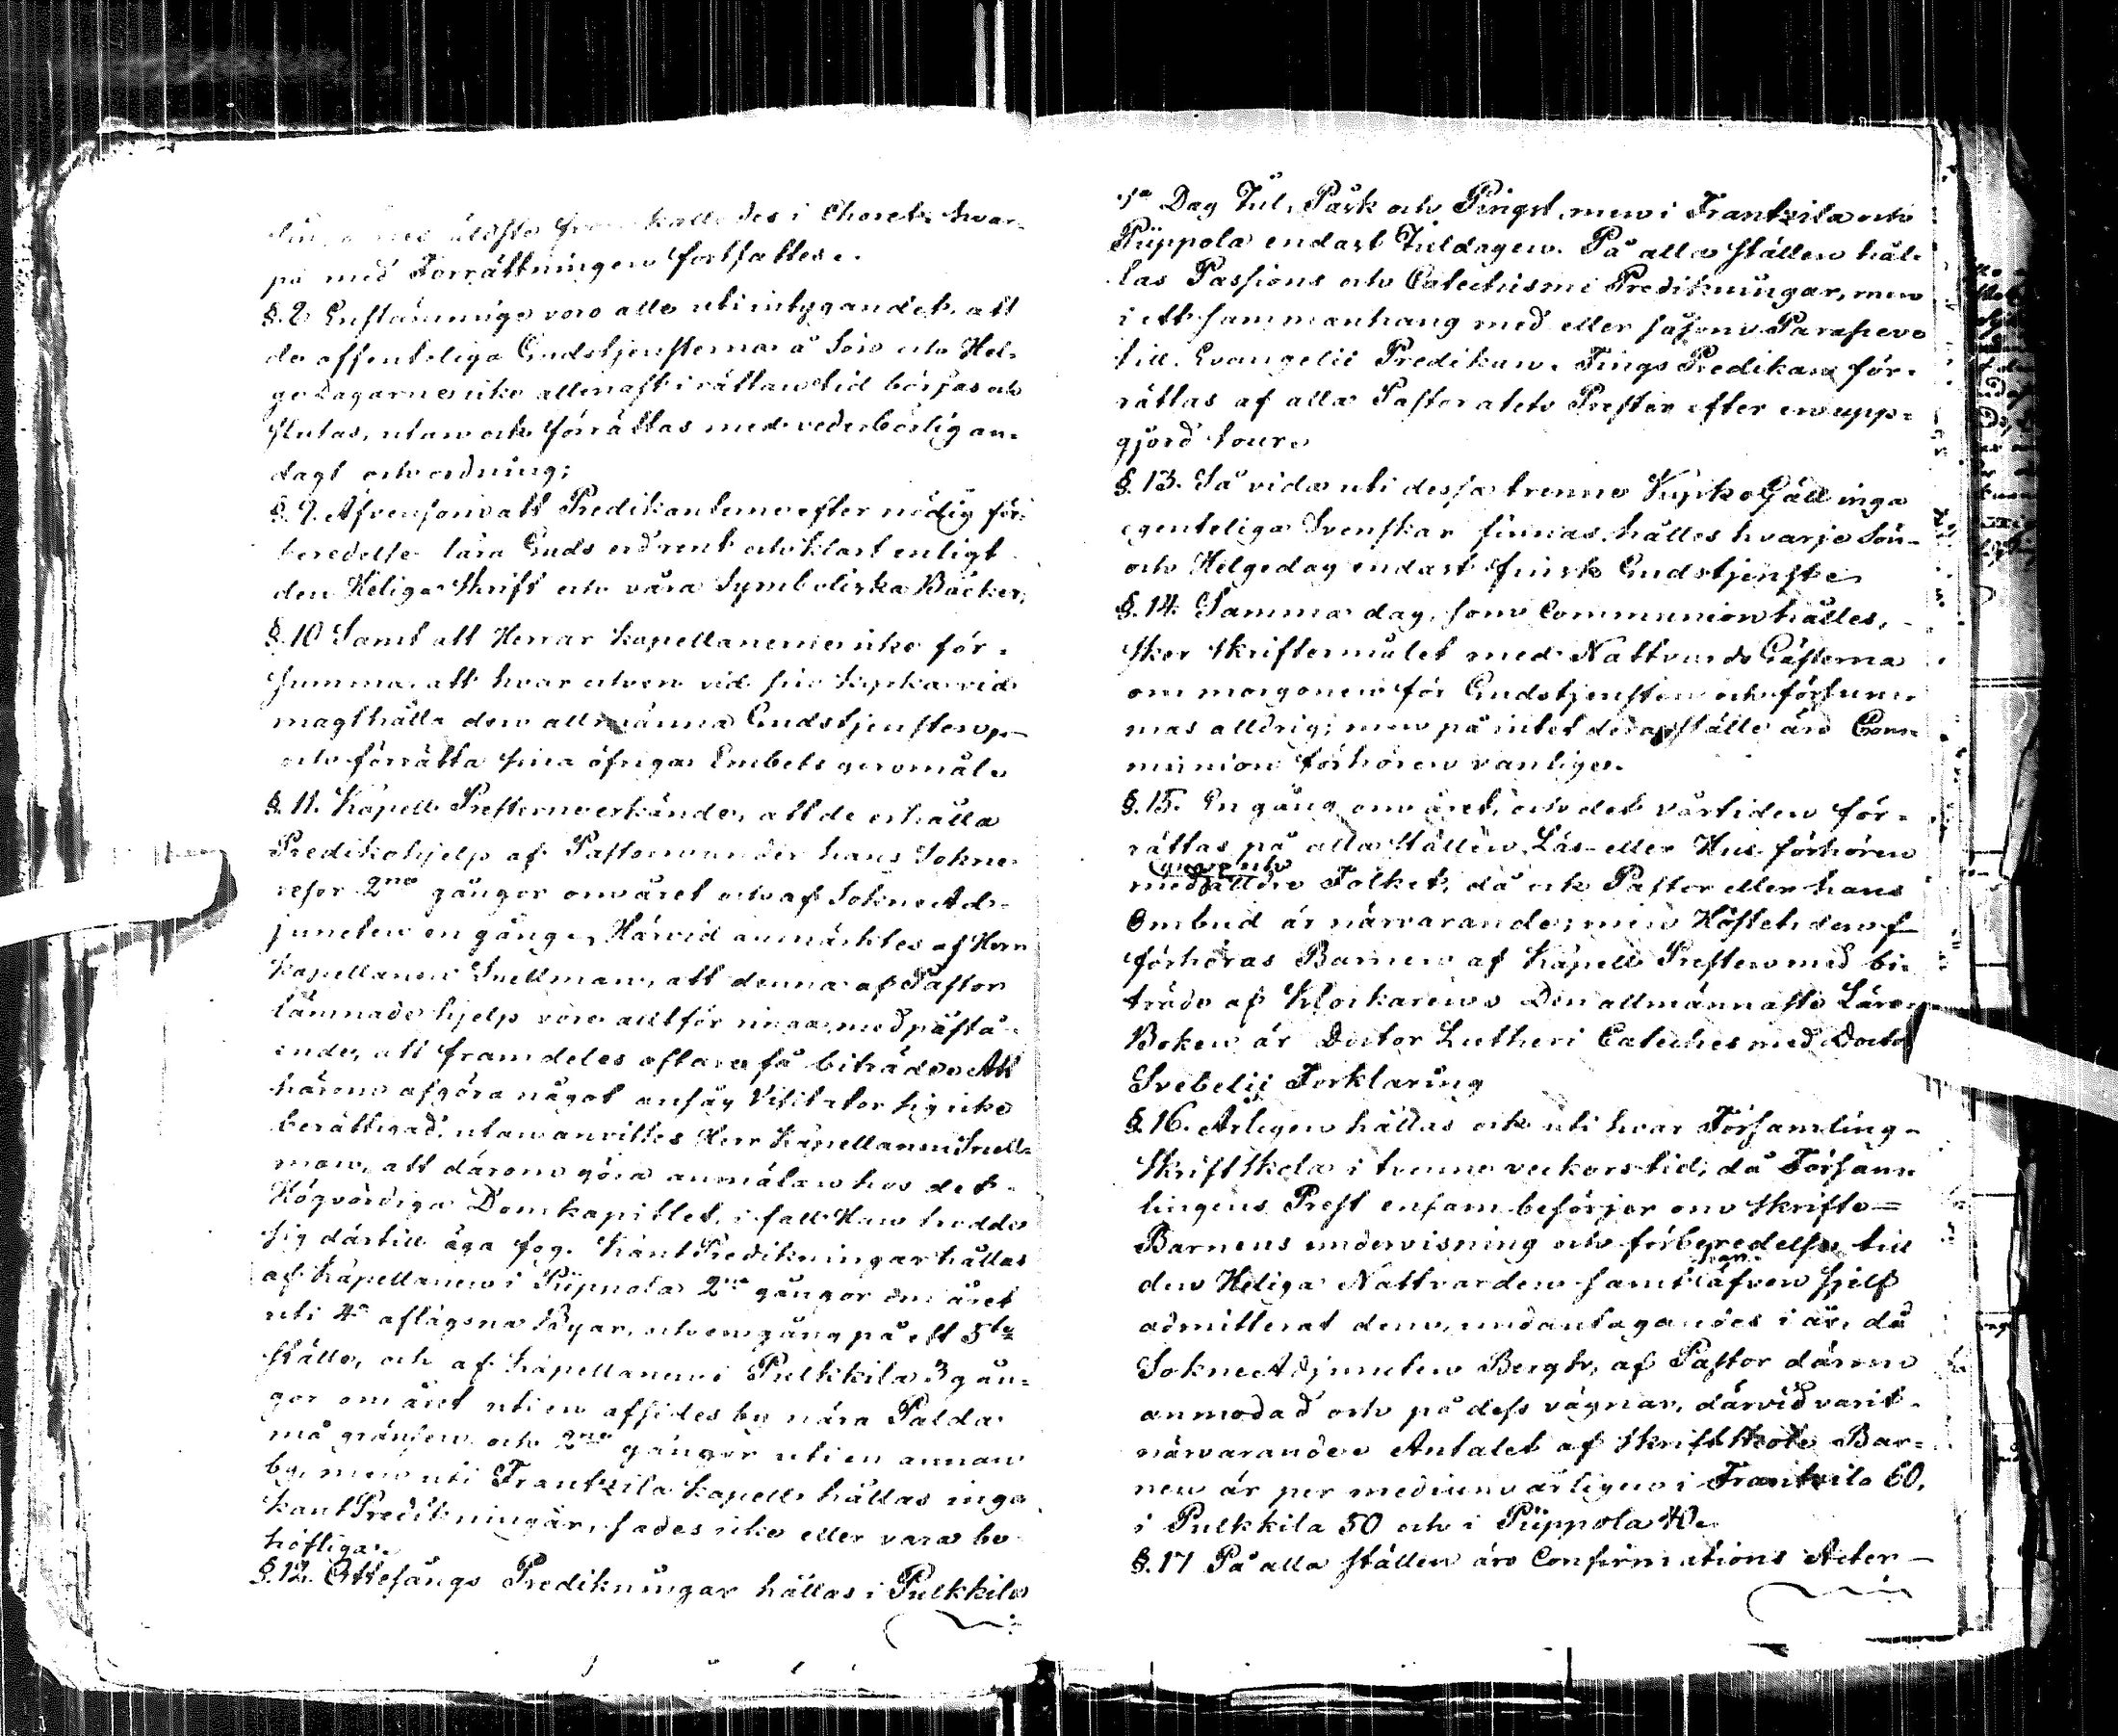 äldste framkallades i Choret, hvar-
på med Förrättningen fortsattes.
§. 8 Enstämmige voro alle uti intygandet, att
de offenteliga Gudstjensterna å Sön och Hel-
gedagarne icke allenast i rättan tid börjas och
slutas, utan ock förrättas med vederbörlig an-
dagt och ordning;
§. 9. Äfvensom att Predikanterne efter nödig för-
beredelse lära Guds ord rent och klart enligt
den Heliga Skrift och våra Symboliska Böcker;
§. 10 Samt att Herrar Kapellanerne icke för-
summa, att hvar och en vid sin kyrka vid
magthålla den allmänna Gudstjensten,
och förrätta sina öfriga Embets göromål.
§. 11. Kapells Presterne erkände, att de erhålla
Predikohjelp af Pastor under hans Sokne-
resor 2ne gånger om året och af Sokne Ad-
juncten en gång. Härvid anmärktes af Herr
Kapellanen Snellman, att denna af Pastor
lämnade hjelp vore alltför ringa, med påstå-
ende, att framdeles oftare få biträde. Att
härom afgöra något ansåg Visitator sig icke
berättigad, utan anvistes Herr Kapellanen Snell-
man, att därom göra anmälan hos det
Högvördiga Domkapitlet, i fall Han trodde
sig därtill äga fog. Kant Predikningar hållas
af Kapellanen i Piippola 2ne gånger om året
uti 4a aflägsna Byar, och en gång på ett 5te
ställe, och af Kapellanen i Pulkkila 3 gån-
gor om året uti en afsides by nära Palda-
må gränsen och 2ne gånger uti en annan
by, men uti Frantzila Kapell hållas inga
kant Predikningar, sades icke eller vara be-
höfliga.
§. 12. Ottesångs Predikningar hållas i Pulkkila
1a Dag Jul, Påsk och Pingst, men i Frantzila och
Piippola endast Juldagen. På alla ställen hål-
las Passions och Catechismi Predikningar, men
i ett sammanhang med eller såsom Parasceve
till Evangelii Predikan. Tings Predikan för-
rättas af alla Pastoratets Prester efter en upp-
gjord tour.
§. 13. Så vida uti dessa trenne Kyrko Gäll inga
egenteliga Svenskar finnas, hålles hvarje Sön-
och Helgedag endast finsk Gudstjenst.
§. 14. Samma dag, som Communion hålles,
sker skriftermålet med Nattvards Gästerna
om morgonen för Gudstjensten och försum-
mas alldrig; men på intet deraf ställe äro Com-
munion förhören vanliga.
§. 15. En gång om året, och det vårtiden för-
rättas på alla ställen Läs- eller Hus förhören
med äldre Folket, då ock Pastor eller hans
Ombud är närvarande; men Hösttiden
förhöras Barnen af Kapells Presten med bi-
träde af Klockaren. Den allmännaste Läro-
Boken är Doctor Lutheri Cateches med Doctor
Svebelii Förklaring
§. 16. Årligen hållas ock uti hvar Församling
Skriftskola i tvenne veckors tid, då Församm-
lingens Prest ensam besörjer om skrifte-
Barnens undervisning och förberedelse till
den Heliga Nattvarden samt han äfven sjelf
admitterat dem, undantagandes i år, då
Sokne Adjuncten Bergh, af Pastor därom
anmodad och på dess vägnar, därvid varit
närvarande. Antalet af Skriftskole Bar-
nen är per medium årligen i Frantzila 60,
i Pulkkila 50 och i Piippola 40.
§. 17 På alla ställen äro Confirmations Acter